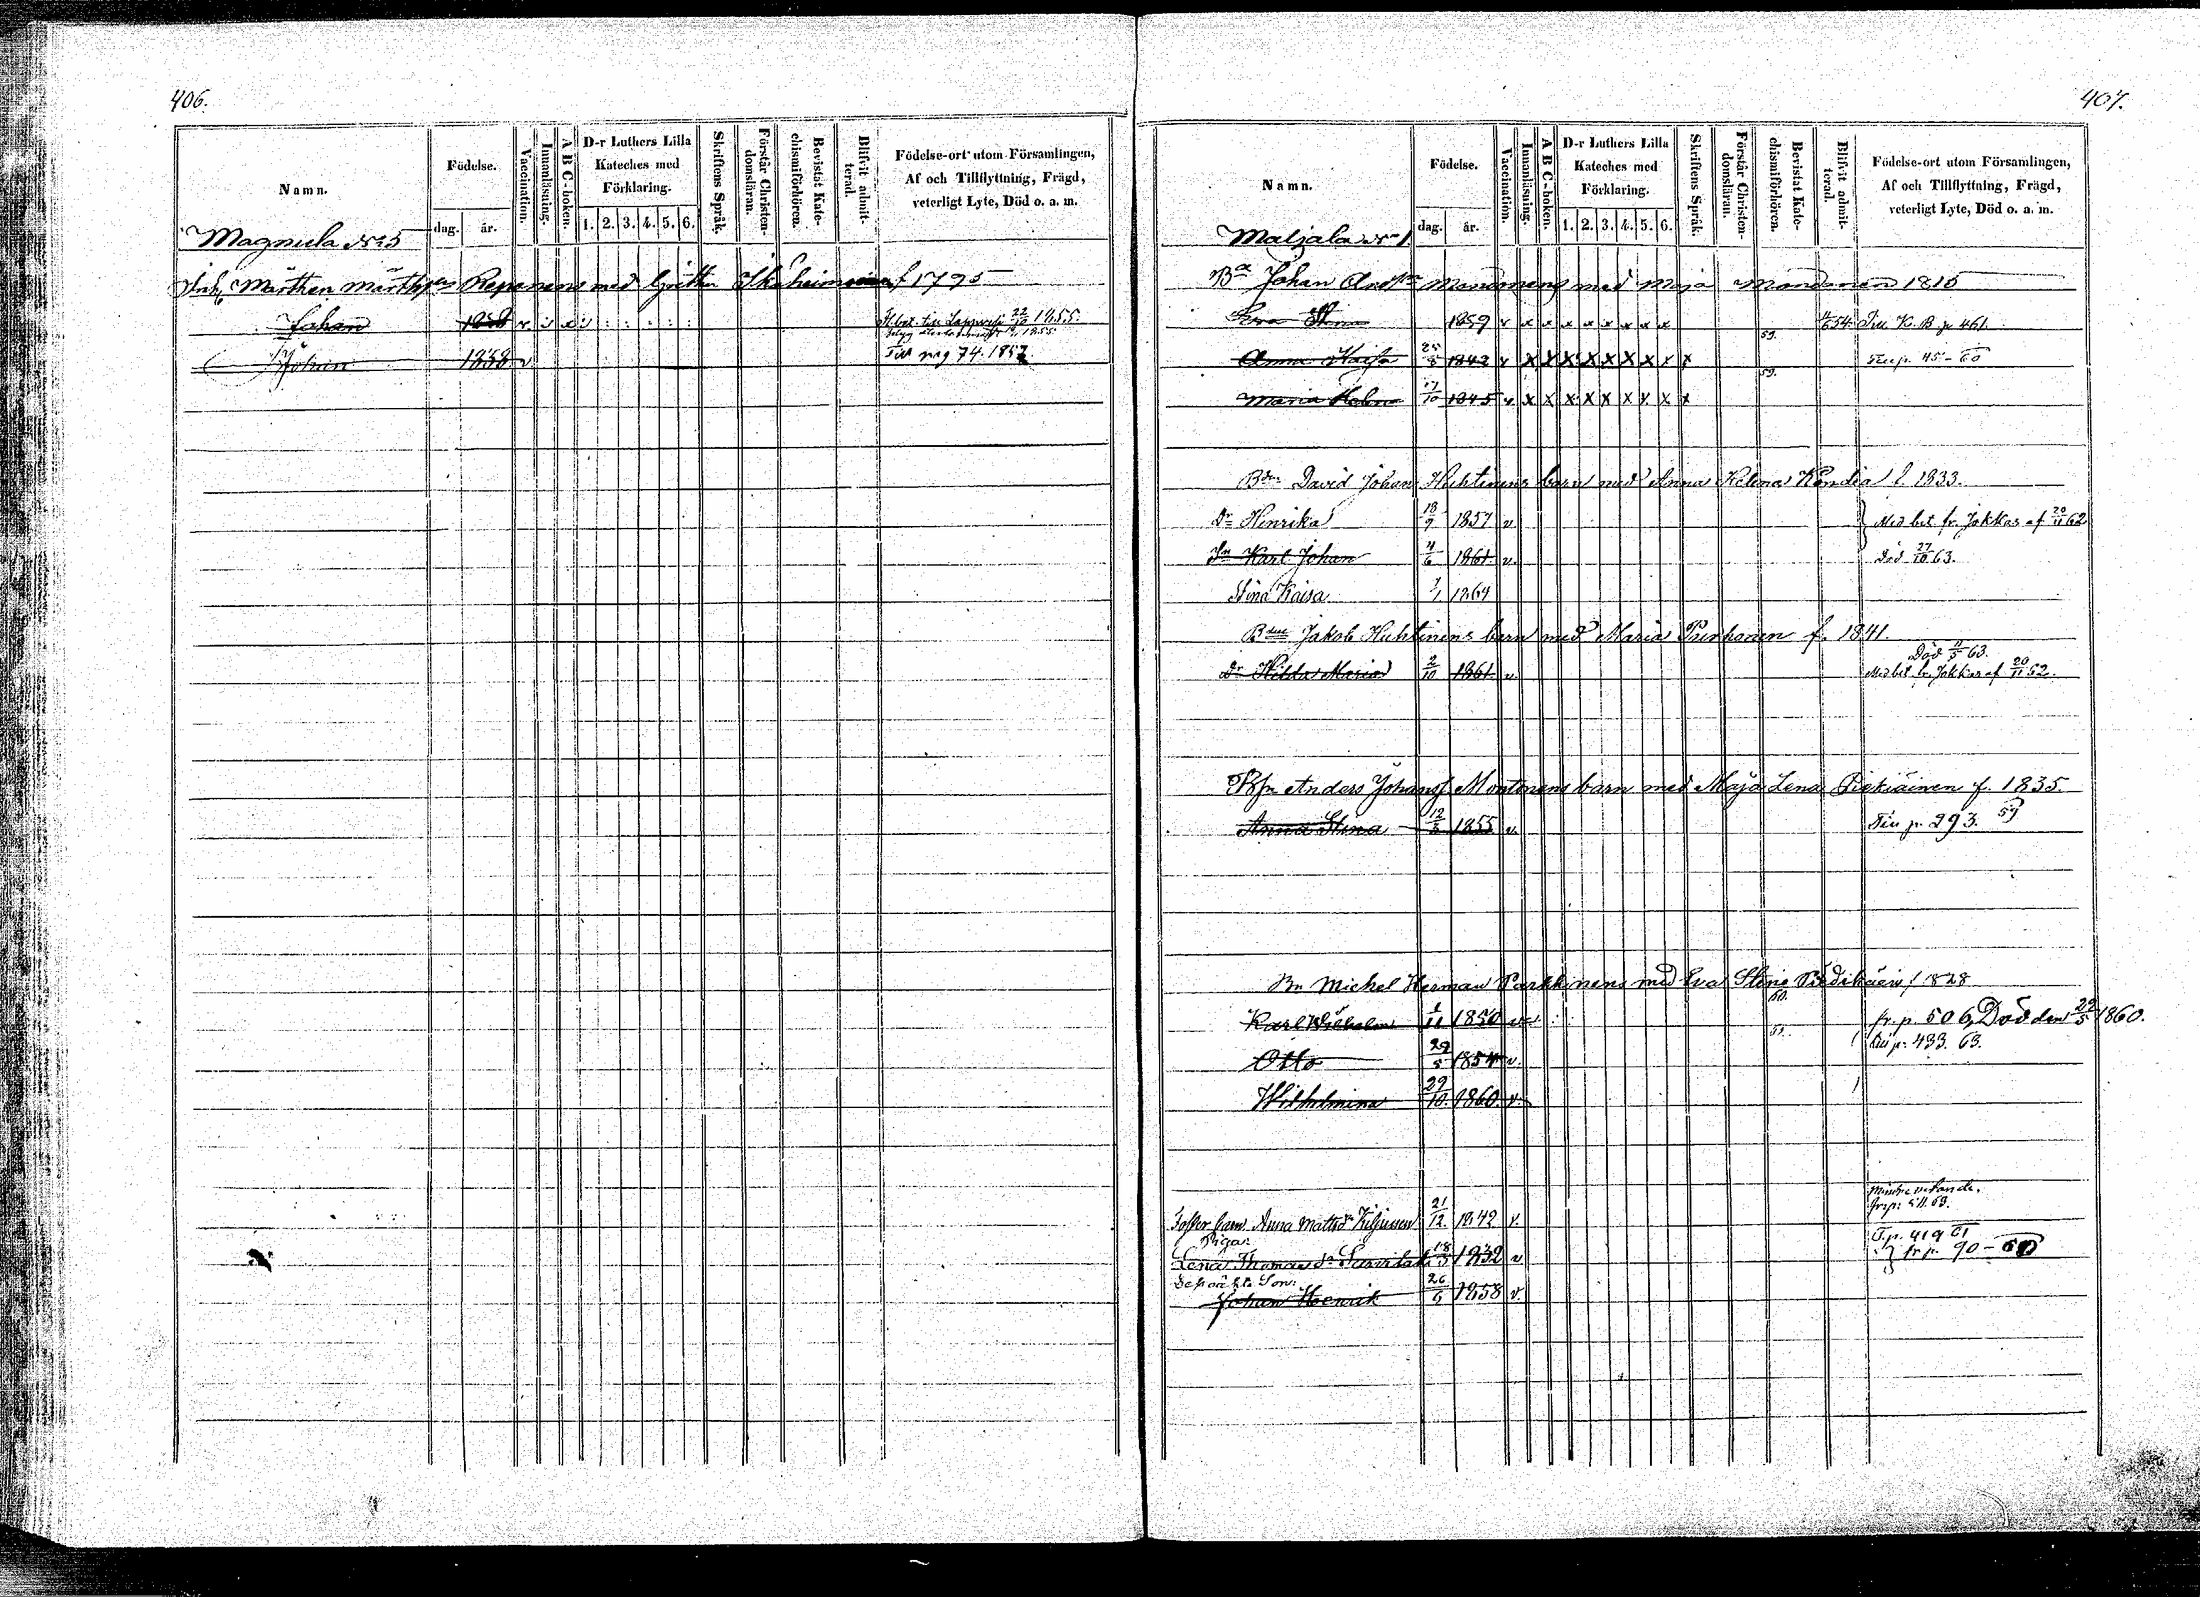 406.
Namn.
Födelse.
dag. år.
Vaccination.
Innanläsning.
A B C-boken.
D-r Luthers Lilla
Kateches med
Förklaring.
1. 2. 3. 4. 5. 6.
Skriftens Språk.
Förstår Christen-
domsläran.
Bevistat Kate-
chismiförhören.
Blifvit admit-
terad.
Födelse-ort utom Församlingen,
Af och Tillflyttning, Frägd,
veterligt Lyte, Död o. a. m.
Magnula No 5
Inh. Mårthen Mårthss Reponens med Grethа f 1795
Johan v
22/10 1855
Johan 1838 v
Till pag 74. 1857
407.
Namn.
Födelse.
dag. år.
Vaccination.
Innanläsning.
A B C-boken.
D-r Luthers Lilla
Kateches med
Förklaring.
1. 2. 3. 4. 5. 6.
Skriftens Språk.
Förstår Christen-
domsläran.
Bevistat Kate-
chismiförhören.
Blifvit admit-
terad.
Födelse-ort utom Församlingen,
Af och Tillflyttning, Frägd,
veterligt Lyte, Död o. a. m.
Maljala No 1
Johan med Maja Mononen 1815
Stina v x x x x x x x x Till K. B p 461.
59.
Anna Kaisa 1842 v x x x x x x x x x Till p. 45-60
59.
Maria Helena 17/10 1845 v x x x x x x x x x
Bdn David Johan Huhtinens barn med Anna Helena f. 1833.
Dr Henrika 18/9 1857 v Med bet. fr. Jokkas af 20/11 62
Sn Karl Johan 4/6 1861 v. Död 27/10 63.
Stina Kaisa 1/1 1864
Jakob Huhtinens barn med Maria Purhonen f. 1841
Död 63.
Dr Hilda Maria 2/10 1861 v. Med bet. fr. Jokkas af 20/11 62.
Anders Johanss. Montonens barn med Maja Lena Piekiäinen f. 1835.
Anna Stina 1855 v. Till p. 293. 59
Bn Michel Herman Parkkinens med Eva Stina 1828
60.
Karl Wilhelm 1/11 1850 v fr. p. 506, Död den 22/5 1860.
59.
Otto 29/5 1854 v. Till p. 433. 63.
Wilhelmina 29/10. 1860. v.
Foster barn Anna Mattsdr 21/12 1842 v.
Piga:
T. p. 419 61
Lena Thomasdr 18/5 1832 v fr p. 90-60
Son:
Johan Henrik 26/6 1858 v.